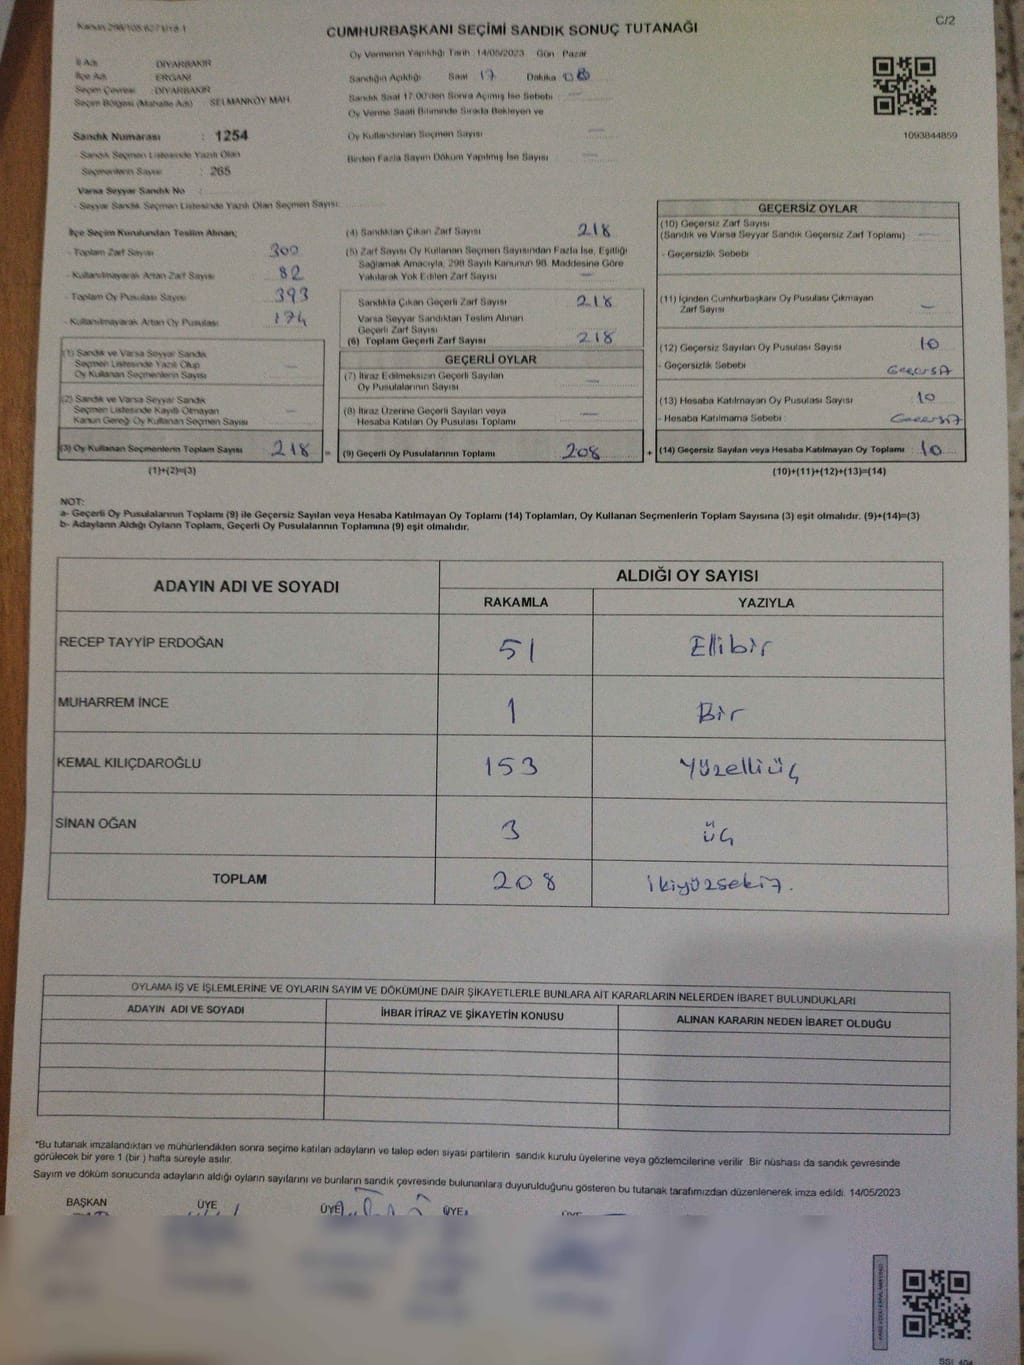 Kanun 298/105 6271/18-1
CUMHURBAŞKANI SEÇİMİ SANDIK SONUÇ TUTANAĞI
C/2
İl Adı DİYARBAKIR
İlçe Adı ERGANİ
Seçim Çevresi DİYARBAKIR
Seçim Bölgesi (Mahalle Adı) SELMANKÖY MAH.
Sandık Numarası : 1254
- Sandık Seçmen Listesinde Yazılı Olan
Seçmenlerin Sayısı : 265
Varsa Seyyar Sandık No
- Seyyar Sandık Seçmen Listesinde Yazılı Olan Seçmen Sayısı:
Oy Vermenin Yapıldığı Tarih 14/05/2023 Gün Pazar
Sandığın Açıldığı Saat 17 Dakika 08
Sandık Saat 17:00'den Sonra Açılmış İse Sebebi
Oy Verme Saati Bitiminde Sırada Bekleyen ve
Oy Kullandırılan Seçmen Sayısı
Birden Fazla Sayım Döküm Yapılmış İse Sayısı
1093844859
İlçe Seçim Kurulundan Teslim Alınan;
- Toplam Zarf Sayısı 300
- Kullanılmayarak Artan Zarf Sayısı 82
- Toplam Oy Pusulası Sayısı 393
- Kullanılmayarak Artan Oy Pusulası 174
(1) Sandık ve Varsa Seyyar Sandık
Seçmen Listesinde Yazılı Olup
Oy Kullanan Seçmenlerin Sayısı —
(2) Sandık ve Varsa Seyyar Sandık
Seçmen Listesinde Kayıtlı Olmayan
Kanun Gereği Oy Kullanan Seçmen Sayısı —
(3) Oy Kullanan Seçmenlerin Toplam Sayısı 218 =
(1)+(2)=(3)
(4) Sandıktan Çıkan Zarf Sayısı 218
(5) Zarf Sayısı Oy Kullanan Seçmen Sayısından Fazla İse, Eşitliği
Sağlamak Amacıyla, 298 Sayılı Kanunun 98. Maddesine Göre
Yakılarak Yok Edilen Zarf Sayısı —
Sandıkta Çıkan Geçerli Zarf Sayısı 218
Varsa Seyyar Sandıktan Teslim Alınan
Geçerli Zarf Sayısı
(6) Toplam Geçerli Zarf Sayısı 218
GEÇERLİ OYLAR
(7) İtiraz Edilmeksizin Geçerli Sayılan
Oy Pusulalarının Sayısı —
(8) İtiraz Üzerine Geçerli Sayılan veya
Hesaba Katılan Oy Pusulası Toplamı —
(9) Geçerli Oy Pusulalarının Toplamı 208 +
GEÇERSİZ OYLAR
(10) Geçersiz Zarf Sayısı
(Sandık ve Varsa Seyyar Sandık Geçersiz Zarf Toplamı) —
- Geçersizlik Sebebi
(11) İçinden Cumhurbaşkanı Oy Pusulası Çıkmayan
Zarf Sayısı —
(12) Geçersiz Sayılan Oy Pusulası Sayısı 10
- Geçersizlik Sebebi
(13) Hesaba Katılmayan Oy Pusulası Sayısı 10
- Hesaba Katılmama Sebebi
(14) Geçersiz Sayılan veya Hesaba Katılmayan Oy Toplamı : 10
(10)+(11)+(12)+(13)=(14)
NOT:
a- Geçerli Oy Pusulalarının Toplamı (9) ile Geçersiz Sayılan veya Hesaba Katılmayan Oy Toplamı (14) Toplamları, Oy Kullanan Seçmenlerin Toplam Sayısına (3) eşit olmalıdır. (9)+(14)=(3)
b- Adayların Aldığı Oyların Toplamı, Geçerli Oy Pusulalarının Toplamına (9) eşit olmalıdır.
ADAYIN ADI VE SOYADI ALDIĞI OY SAYISI
RAKAMLA YAZIYLA
RECEP TAYYİP ERDOĞAN 51 Ellibir
MUHARREM İNCE 1 Bir
KEMAL KILIÇDAROĞLU 153 Yüzelliüç
SİNAN OĞAN 3 üç
TOPLAM 208 ikiyüzsekiz.
OYLAMA İŞ VE İŞLEMLERİNE VE OYLARIN SAYIM VE DÖKÜMÜNE DAİR ŞİKAYETLERLE BUNLARA AİT KARARLARIN NELERDEN İBARET BULUNDUKLARI
ADAYIN ADI VE SOYADI İHBAR İTİRAZ VE ŞİKAYETİN KONUSU ALINAN KARARIN NEDEN İBARET OLDUĞU
*Bu tutanak imzalandıktan ve mühürlendikten sonra seçime katılan adayların ve talep eden siyasi partilerin sandık kurulu üyelerine veya gözlemcilerine verilir. Bir nüshası da sandık çevresinde
görülecek bir yere 1 (bir) hafta süreyle asılır.
Sayım ve döküm sonucunda adayların aldığı oyların sayılarını ve bunların sandık çevresinde bulunanlara duyurulduğunu gösteren bu tutanak tarafımızdan düzenlenerek imza edildi. 14/05/2023
BAŞKAN ÜYE ÜYE ÜYE ÜYE